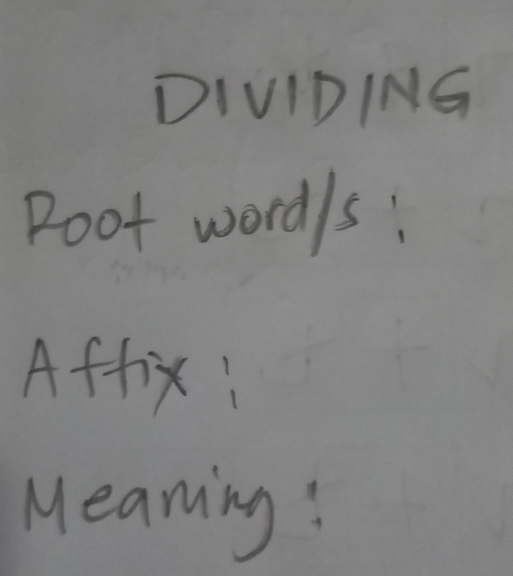 DIVIDING
Root word/s :
Affix :
Meaning :